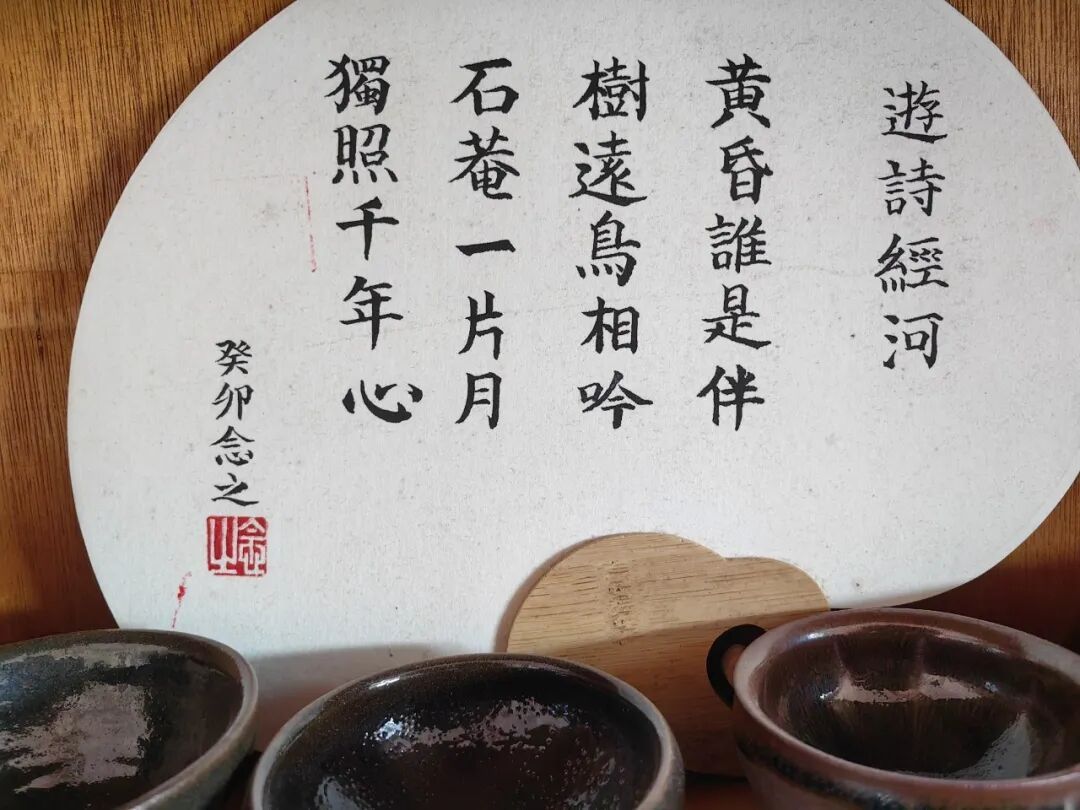 遊詩經河
黄昏誰是伴
樹遠鳥相吟
石菴一片月
獨照千年心
癸卯念之
念之